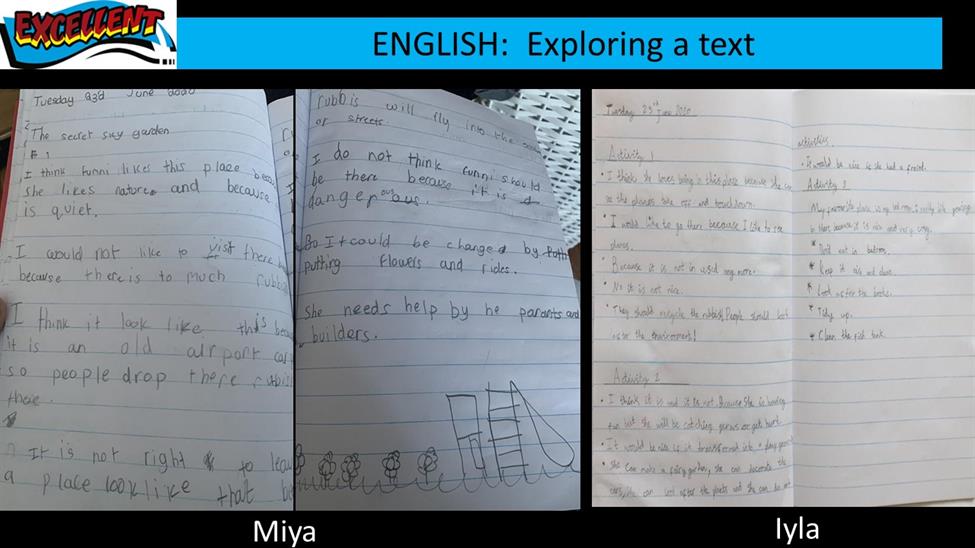 EXCELLENT
ENGLISH: Exploring a text
Tuesday 23d June 2020
The secret sky garden
1
I think funni likes this place
she likes nature and because
is quiet.
I would not like to visit there
because there is to much
I think it look like this
it is an old airport
so people drop there
there.
It is not right to
a place look like that
will fly into the
or streets.
I do not think funni should
be there because it is
dangerous.
It could be changed by
putting flowers and rides.
She needs help by he parants and
builders.
Tuesday 23rd June 2020
Activity 1
I think she loves being in this place because she can
see the planes take off and touchdown.
I would like to go there because I like to see
planes.
Because it is not in used any more.
No it is not nice.
They should recycle the rubbish. People should look
after the environment!
Activity 2
I think it is and it is not. Because she is having
fun but she will be catching germs or get hurt.
It would be nice if it transformed into a
She can make a fairy garden, she can decorate the
cars, she can look after the plants and she can do art
activities.
It would be nice if she had a friend.
Activity 3
My favourite place is my bedroom. I really like
in there because it is nice and
Dont eat in bedroom.
Keep it nice and clean.
Look after the books.
Tidy up.
Clean the fish tank.
Miya
Iyla